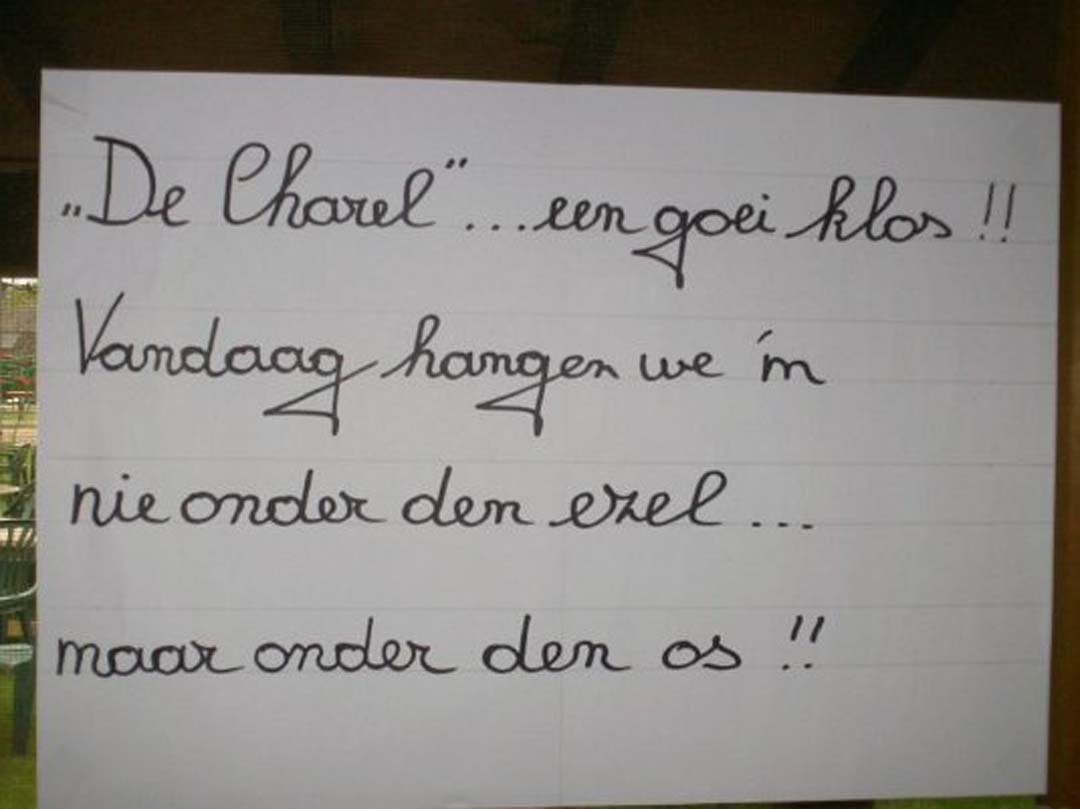 „De Charel“...een goei klos !!
Vandaag hangen we 'm
nie onder den ezel...
maar onder den os !!